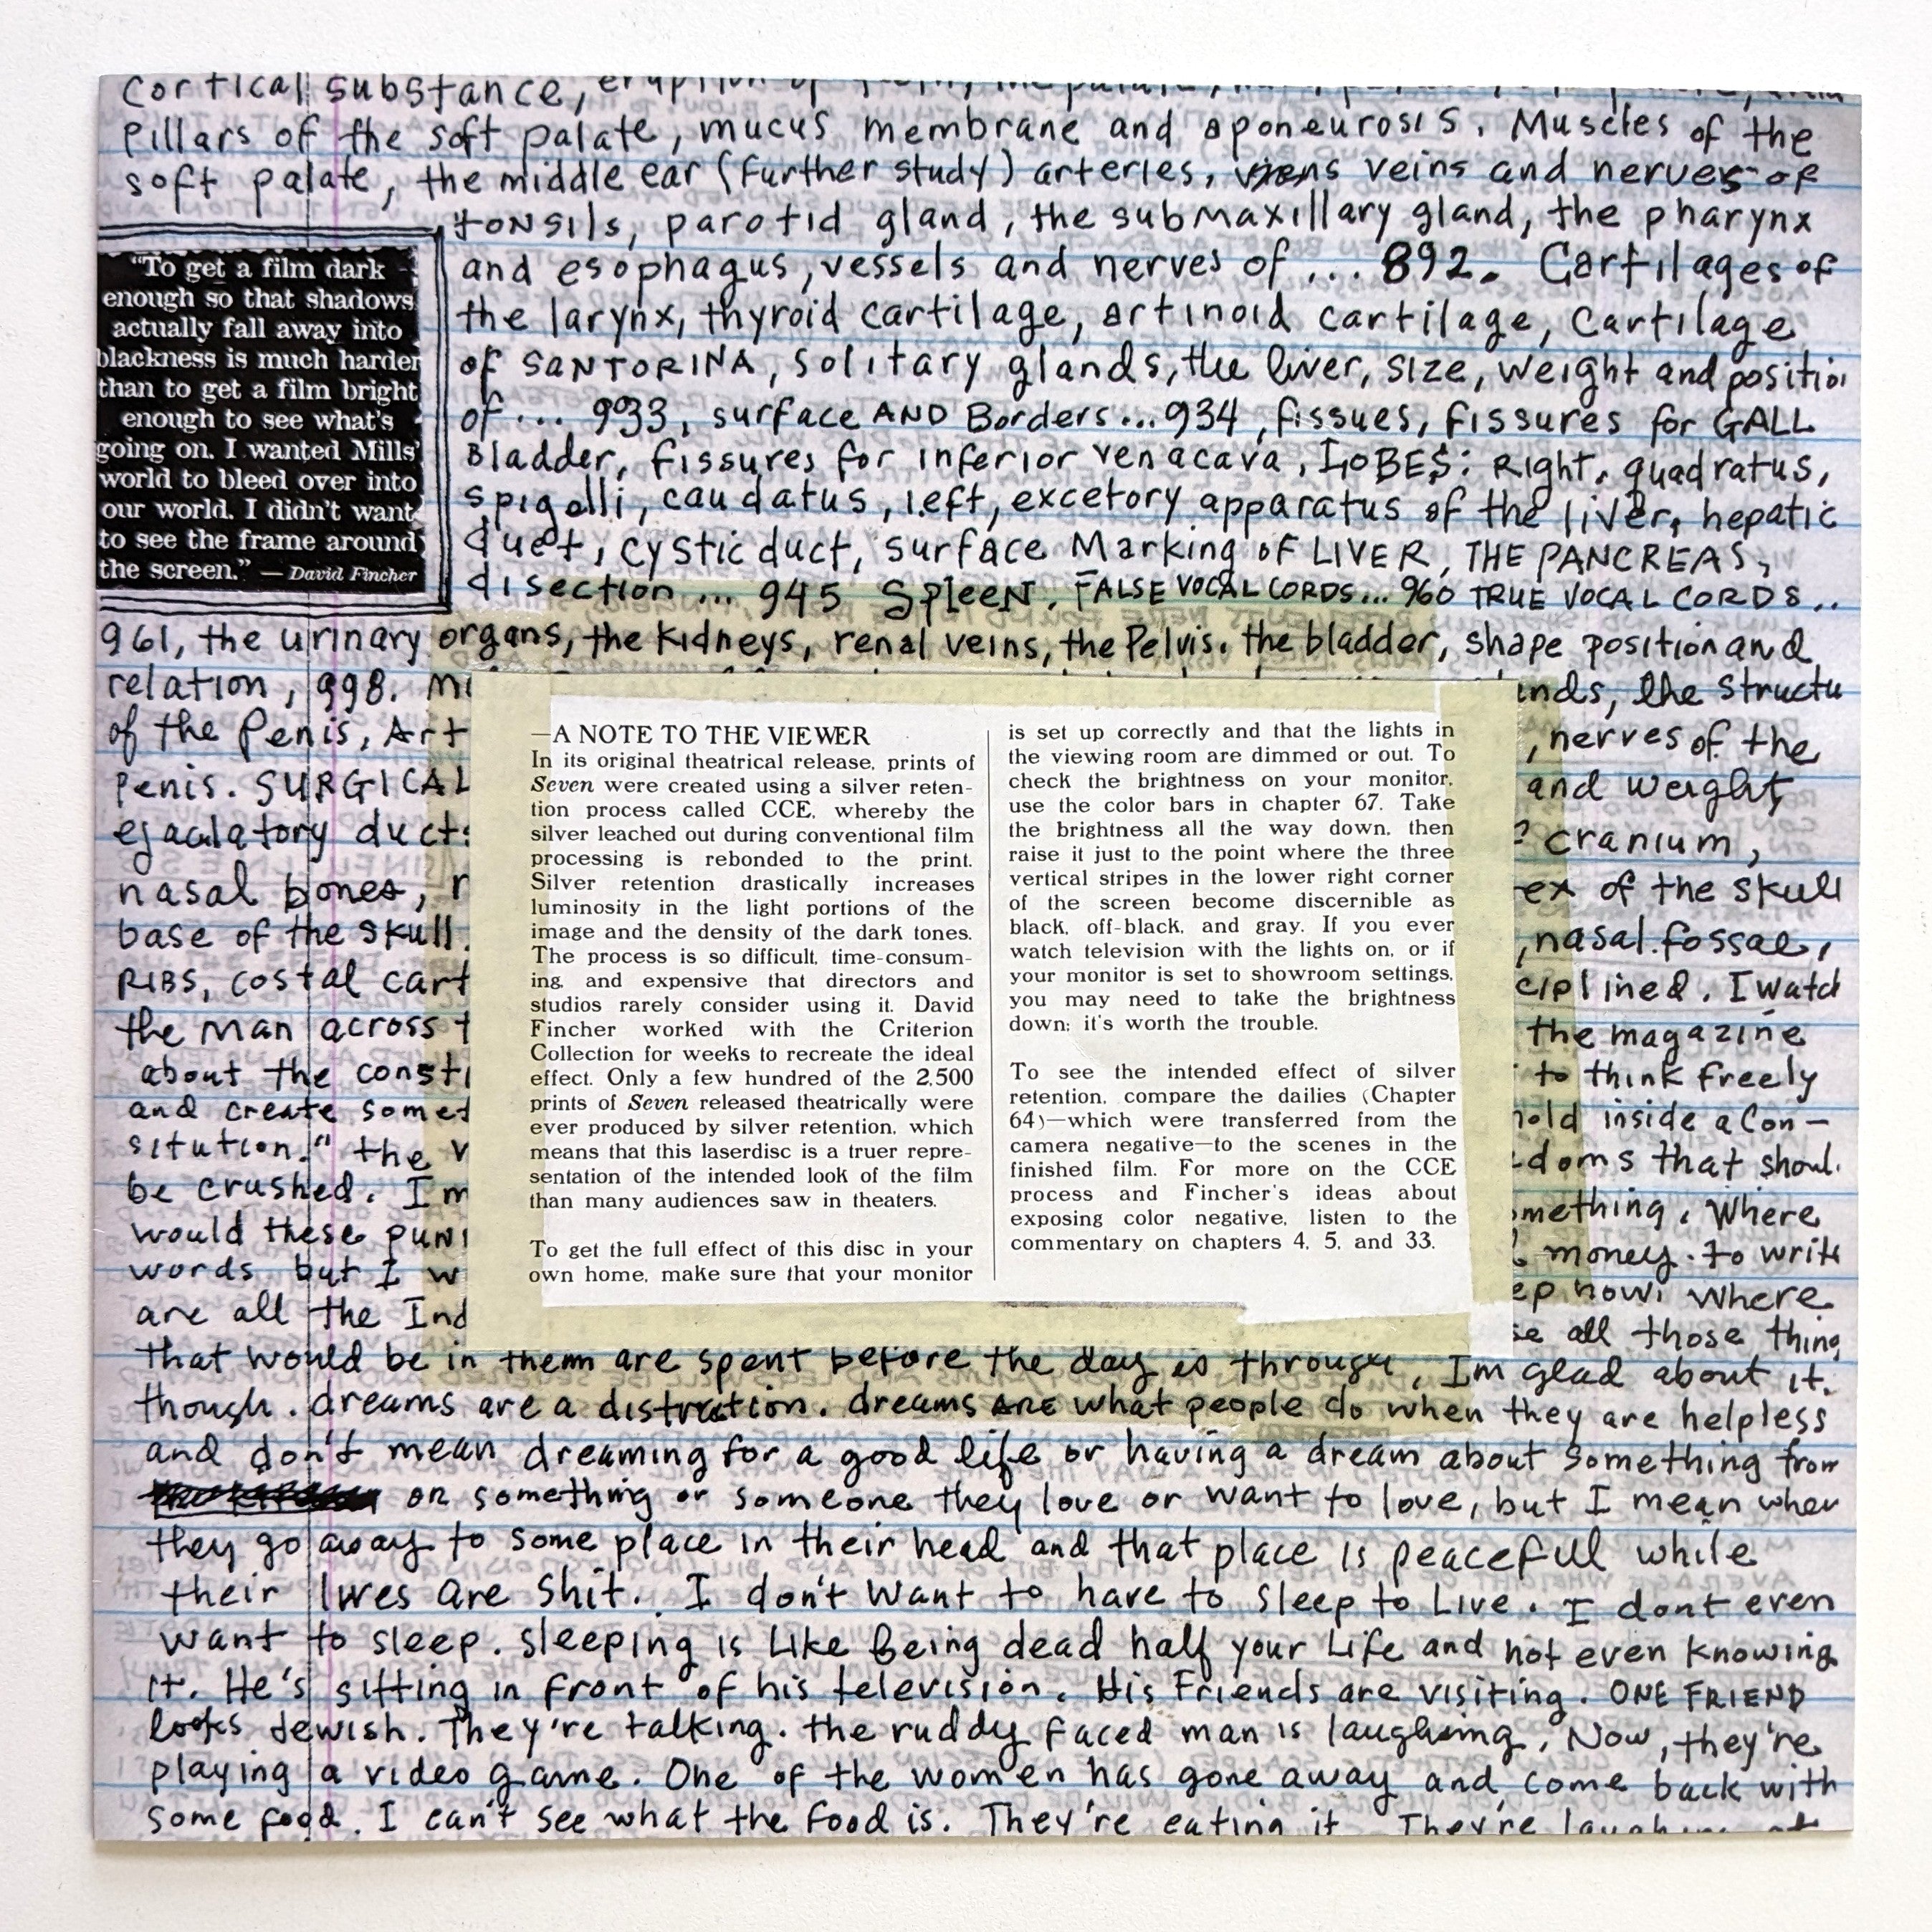 cortical substance, eruption of
Pillars of the soft palate, mucus membrane and aponeurosis. Muscles of the
soft palate, the middle ear (further study) arteries, veins and nerves of
tonsils, parotid gland, the submaxillary gland, the pharynx
and esophagus, vessels and nerves of ... 892. Cartilages of
the larynx, thyroid cartilage, artinoid cartilage, Cartilage
of SANTORINA, solitary glands, the liver, size, weight and positio
of ... 933, surface AND Borders...934, fissues, fissures for GALL
Bladder, fissures for inferior venacava, LOBES: Right, quadratus,
spigelli, caudatus, left, excetory apparatus of the liver, hepatic
duct, cystic duct, surface Marking of LIVER, THE PANCREAS,
disection ... 945 Spleen. FALSE VOCAL CORDS...960 TRUE VOCAL CORDS..
"To get a film dark
enough so that shadows
actually fall away into
blackness is much harder
than to get a film bright
enough to see what's
going on. I wanted Mills'
world to bleed over into
our world. I didn't want
to see the frame around
the screen." — David Fincher
961, the urinary organs, the kidneys, renal veins, the Pelvis. the bladder, shape position and
relation, 998. M nds, the structu
of the Penis, Art , nerves of the
Penis. SURGICAL and weight,
ejaculatory ducts cranium,
nasal bones, r ex of the skull
base of the skull. , nasal fossae,
RIBS, costal cart ciplined. I watch
the man across t the magazine
about the consti to think freely
and create somet hold inside a con-
stitution." the v doms that shoul
be crushed. I m omething. Where
would these puni money. to write
words but I w ep now. where
are all the Ind se all those thing
that would be in them are spent before the day is through, Im glad about it.
though. dreams are a distration. dreams ARE what people do when they are helpless
and don't mean dreaming for a good life or having a dream about something from
or something or someone they love or want to love, but I mean when
they go away to some place in their head and that place is peaceful while
their lives are shit. I don't want to have to sleep to Live. I dont even
want to sleep. sleeping is like Being dead half your life and not even knowing
it. He's sitting in front of his television. His Friends are visiting. ONE FRIEND
looks Jewish. They're talking. the ruddy faced man is laughing, Now, they're
playing a video game. One of the women has gone away and come back with
some food. I can't see what the food is. They're eating it. They're laughing at
—A NOTE TO THE VIEWER
In its original theatrical release, prints of
Seven were created using a silver reten-
tion process called CCE, whereby the
silver leached out during conventional film
processing is rebonded to the print.
Silver retention drastically increases
luminosity in the light portions of the
image and the density of the dark tones.
The process is so difficult, time-consum-
ing, and expensive that directors and
studios rarely consider using it. David
Fincher worked with the Criterion
Collection for weeks to recreate the ideal
effect. Only a few hundred of the 2,500
prints of Seven released theatrically were
ever produced by silver retention, which
means that this laserdisc is a truer repre-
sentation of the intended look of the film
than many audiences saw in theaters.
To get the full effect of this disc in your
own home, make sure that your monitor
is set up correctly and that the lights in
the viewing room are dimmed or out. To
check the brightness on your monitor,
use the color bars in chapter 67. Take
the brightness all the way down, then
raise it just to the point where the three
vertical stripes in the lower right corner
of the screen become discernible as
black, off-black, and gray. If you ever
watch television with the lights on, or if
your monitor is set to showroom settings,
you may need to take the brightness
down; it's worth the trouble.
To see the intended effect of silver
retention, compare the dailies (Chapter
64)—which were transferred from the
camera negative—to the scenes in the
finished film. For more on the CCE
process and Fincher's ideas about
exposing color negative, listen to the
commentary on chapters 4, 5, and 33.